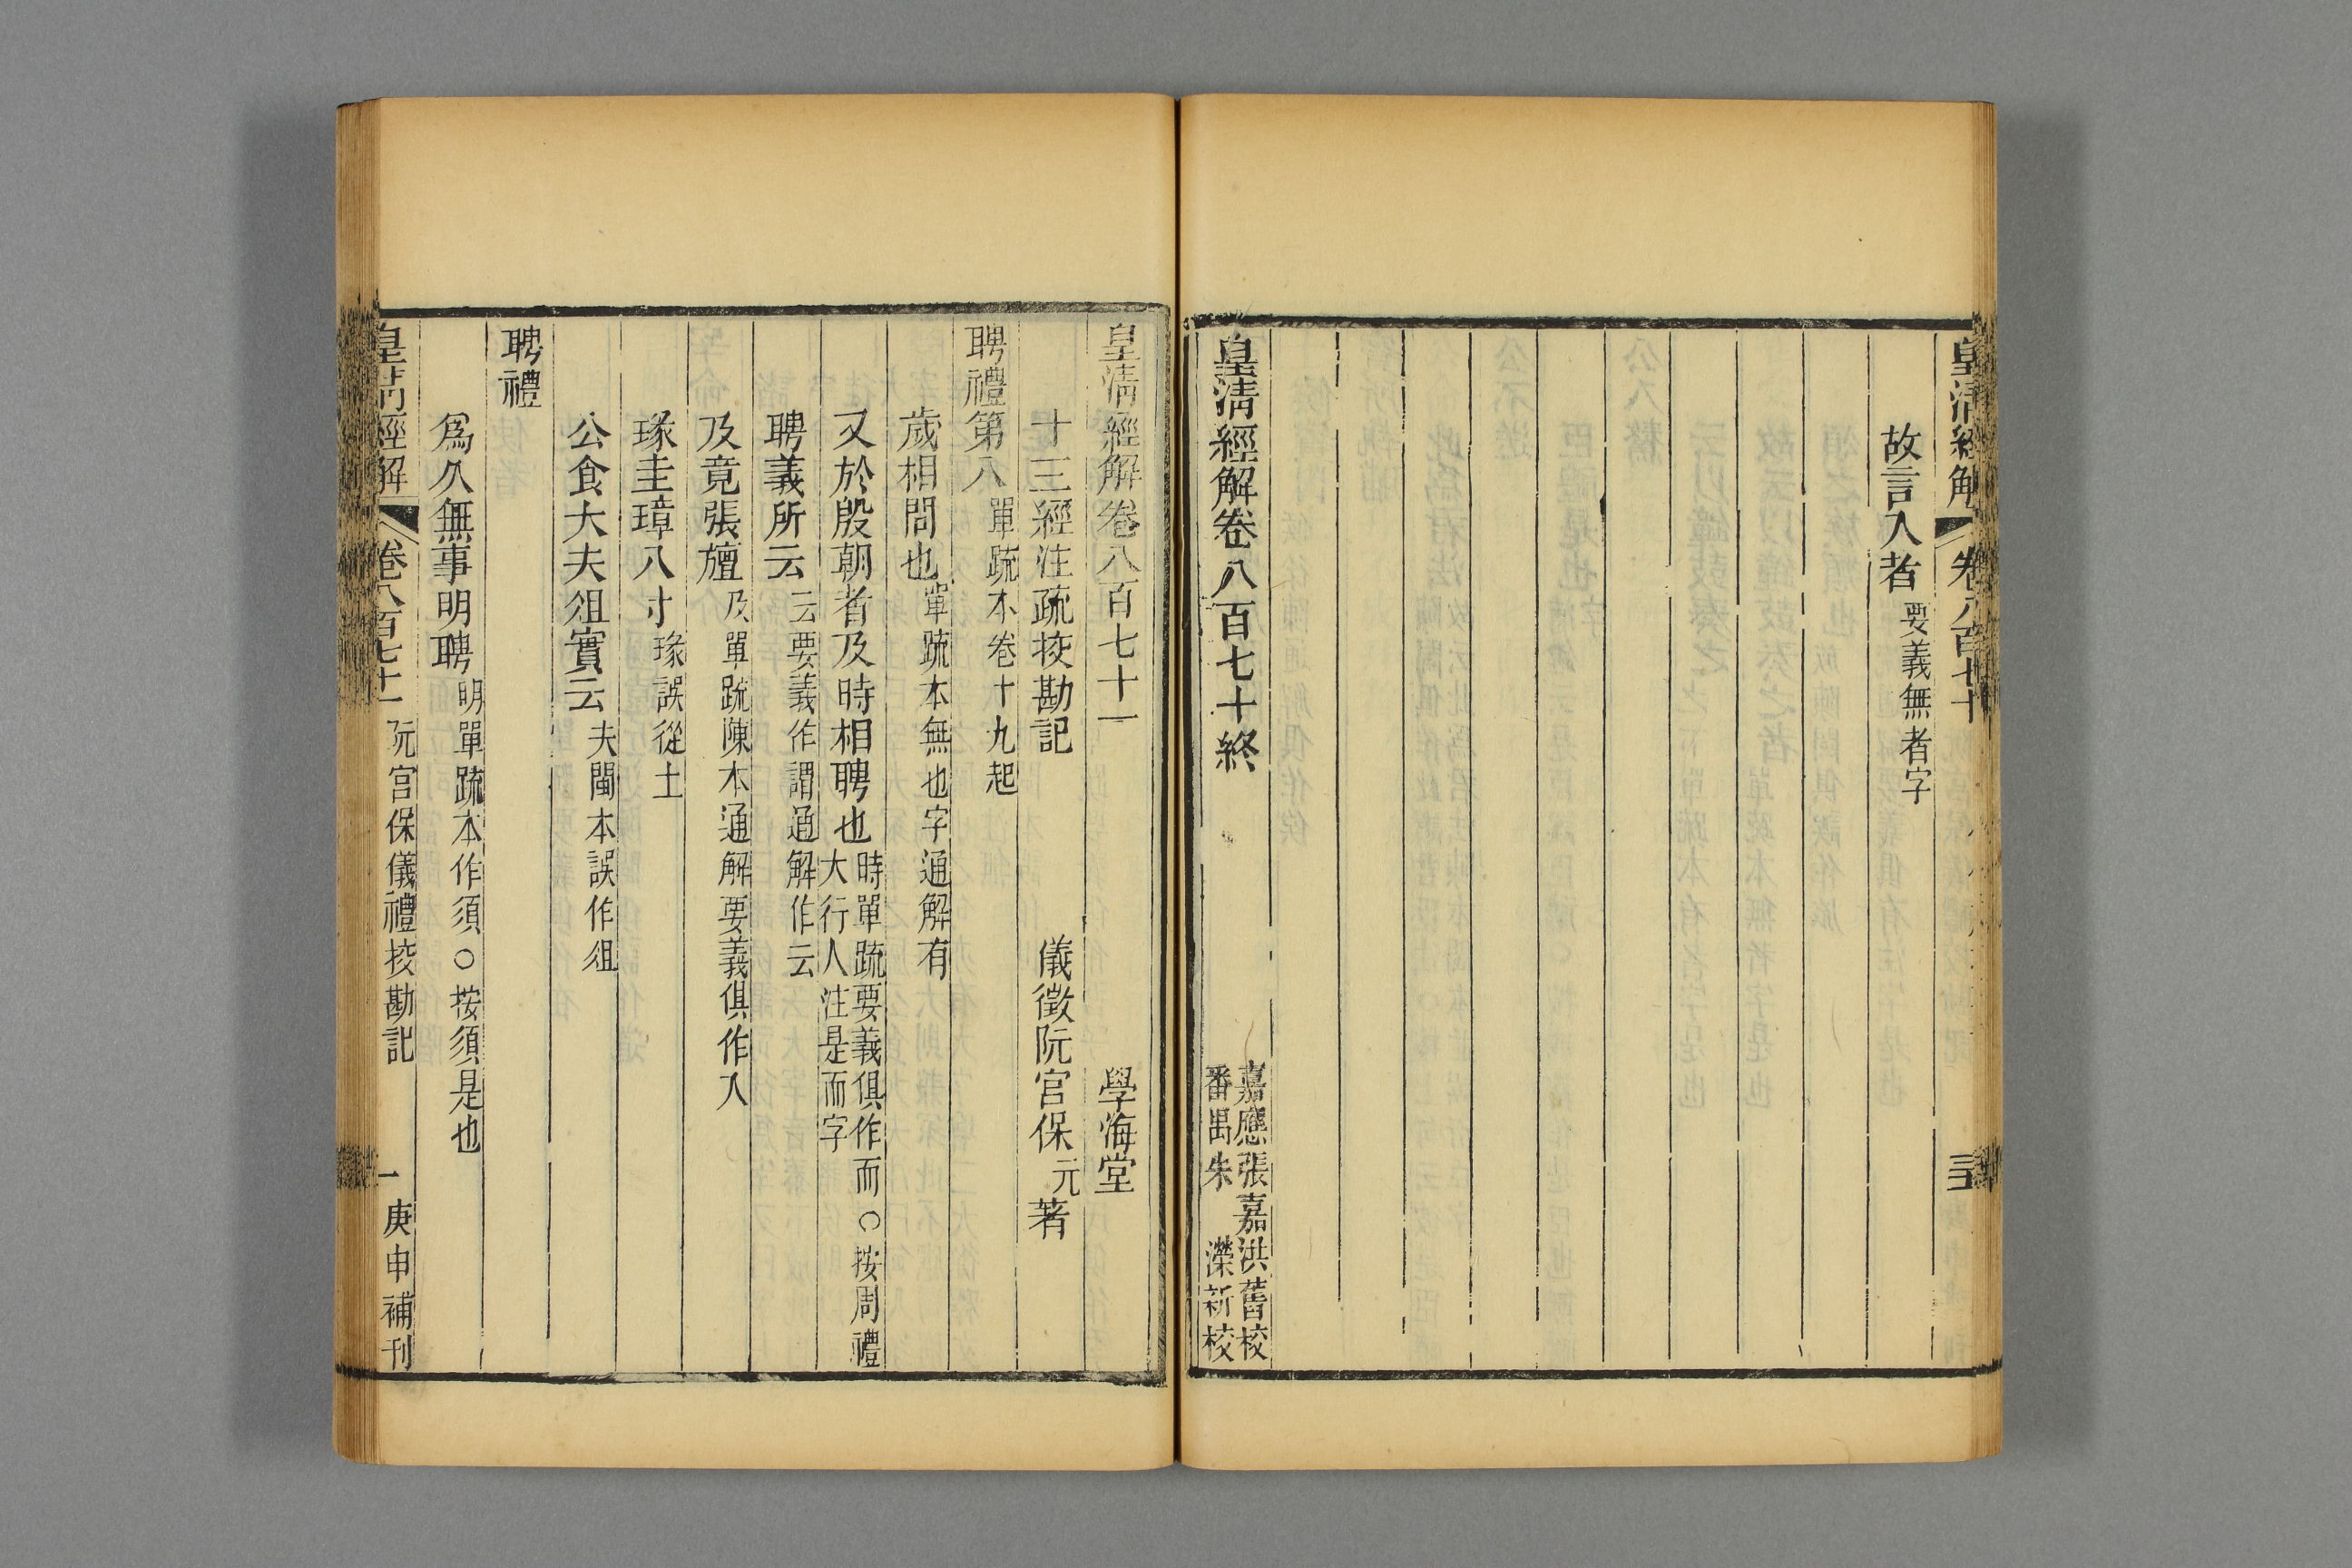 皇清經解 卷八百七十
故言入者要義無者字
皇清經解卷八百七十終
嘉應張嘉洪舊校
番禺朱 濚新校
皇清經解卷八百七十一 學海堂
十三經注疏挍勘記 儀徵阮宮保元著
聘禮第八單疏本卷十九起
歲相問也單疏本無也字通解有
又於殷朝者及時相聘也時單疏要義俱作而○按周禮
大行人注是而字
聘義所云云要義作謂通解作云
及竟張旜及單疏陳本通解要義俱作入
瑑圭璋八寸瑑誤從土
公食大夫俎實云夫閩本誤作俎
聘禮
爲久無事明聘明單疏本作須○按須是也
皇清經解 卷八百七十一 阮宮保儀禮挍勘記 一 庚申補刊